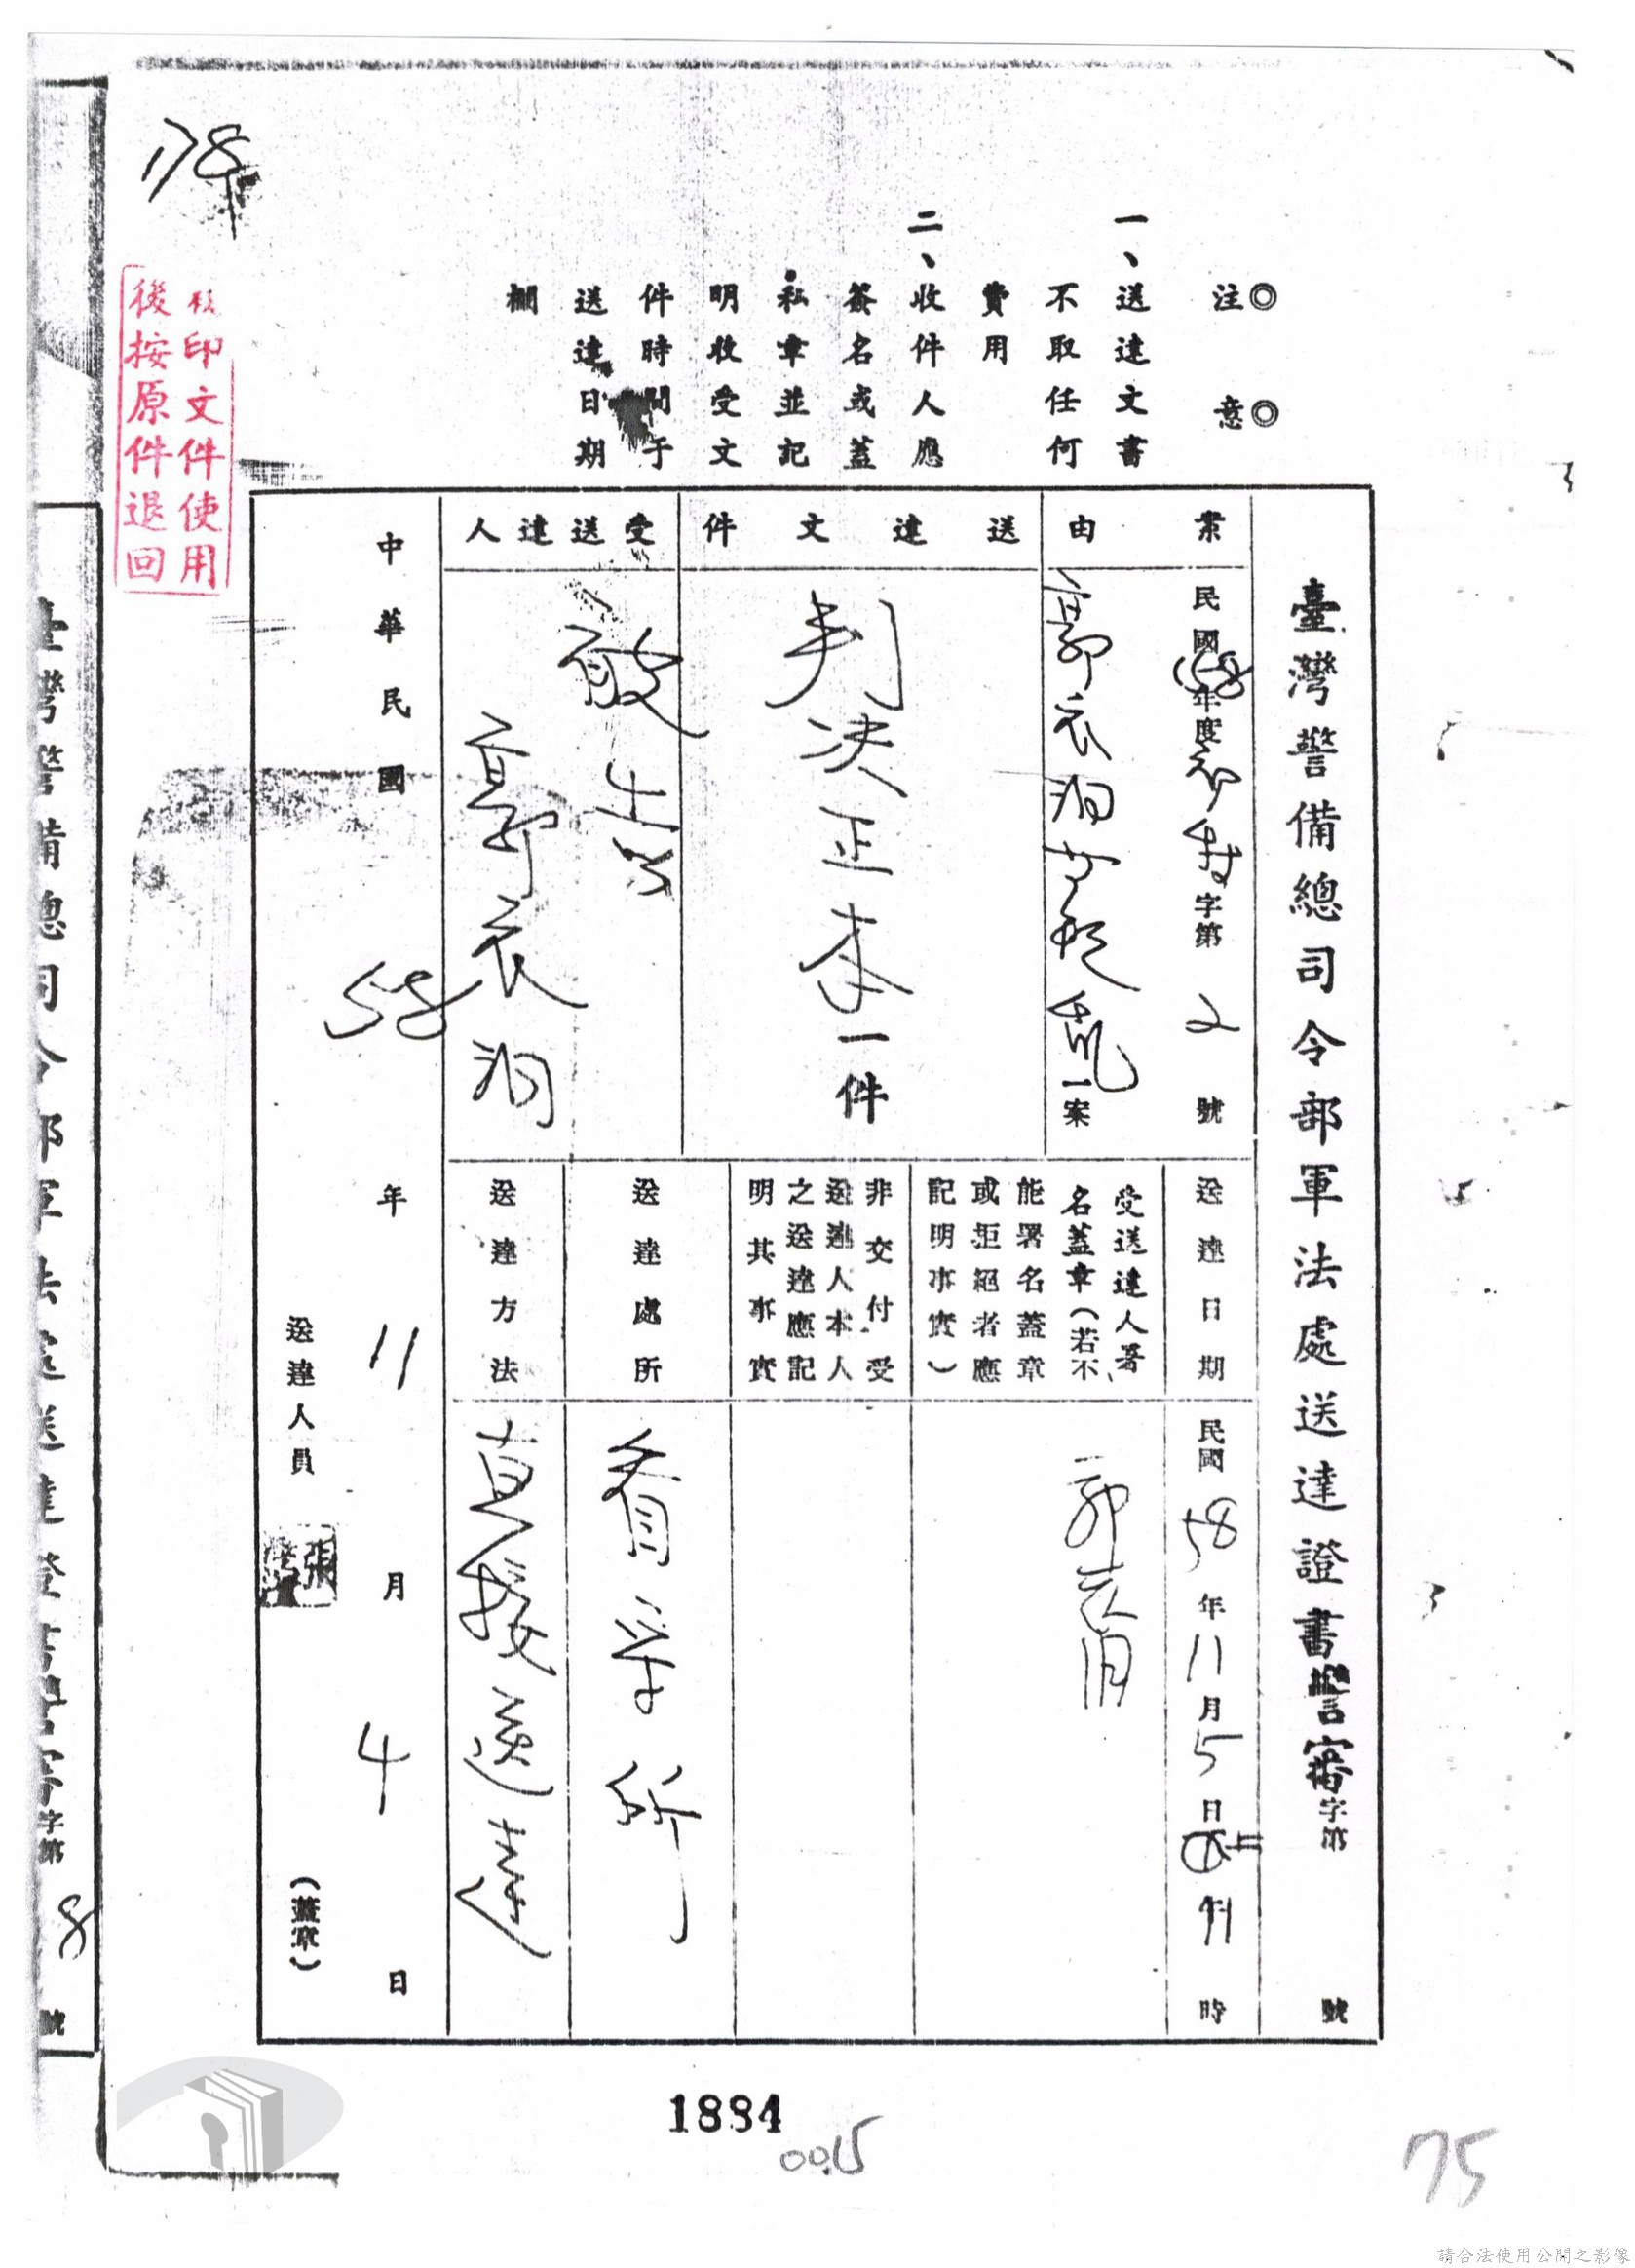 ◎注意◎
一、送達文書
不取任何
費用
二、收件人應
簽名或蓋
私章並記
明收受文
件時間于
送達日期
欄
臺灣警備總司令部軍法處送達證書警審字第
號
案由
民國58年度初特字第2號
郭衣洞叛亂一案
送達文件
判決正本一件
受送達人
被告
郭衣洞
送達日期
民國58年11月5日
時
受送達人署
名蓋章(若不
能署名蓋章
或拒絕者應
記明事實)
郭衣洞
非交付受
送達人本人
之送達應記
明其事實
送達處所
看守所
送達方法
直接送達
中華民國58年11月4日
送達人員
張
(蓋章)
印文件使用
後按原件退回
臺灣警備總司令部軍法處送達證書警審字第8號
1884
0015
75
請合法使用公開之影像